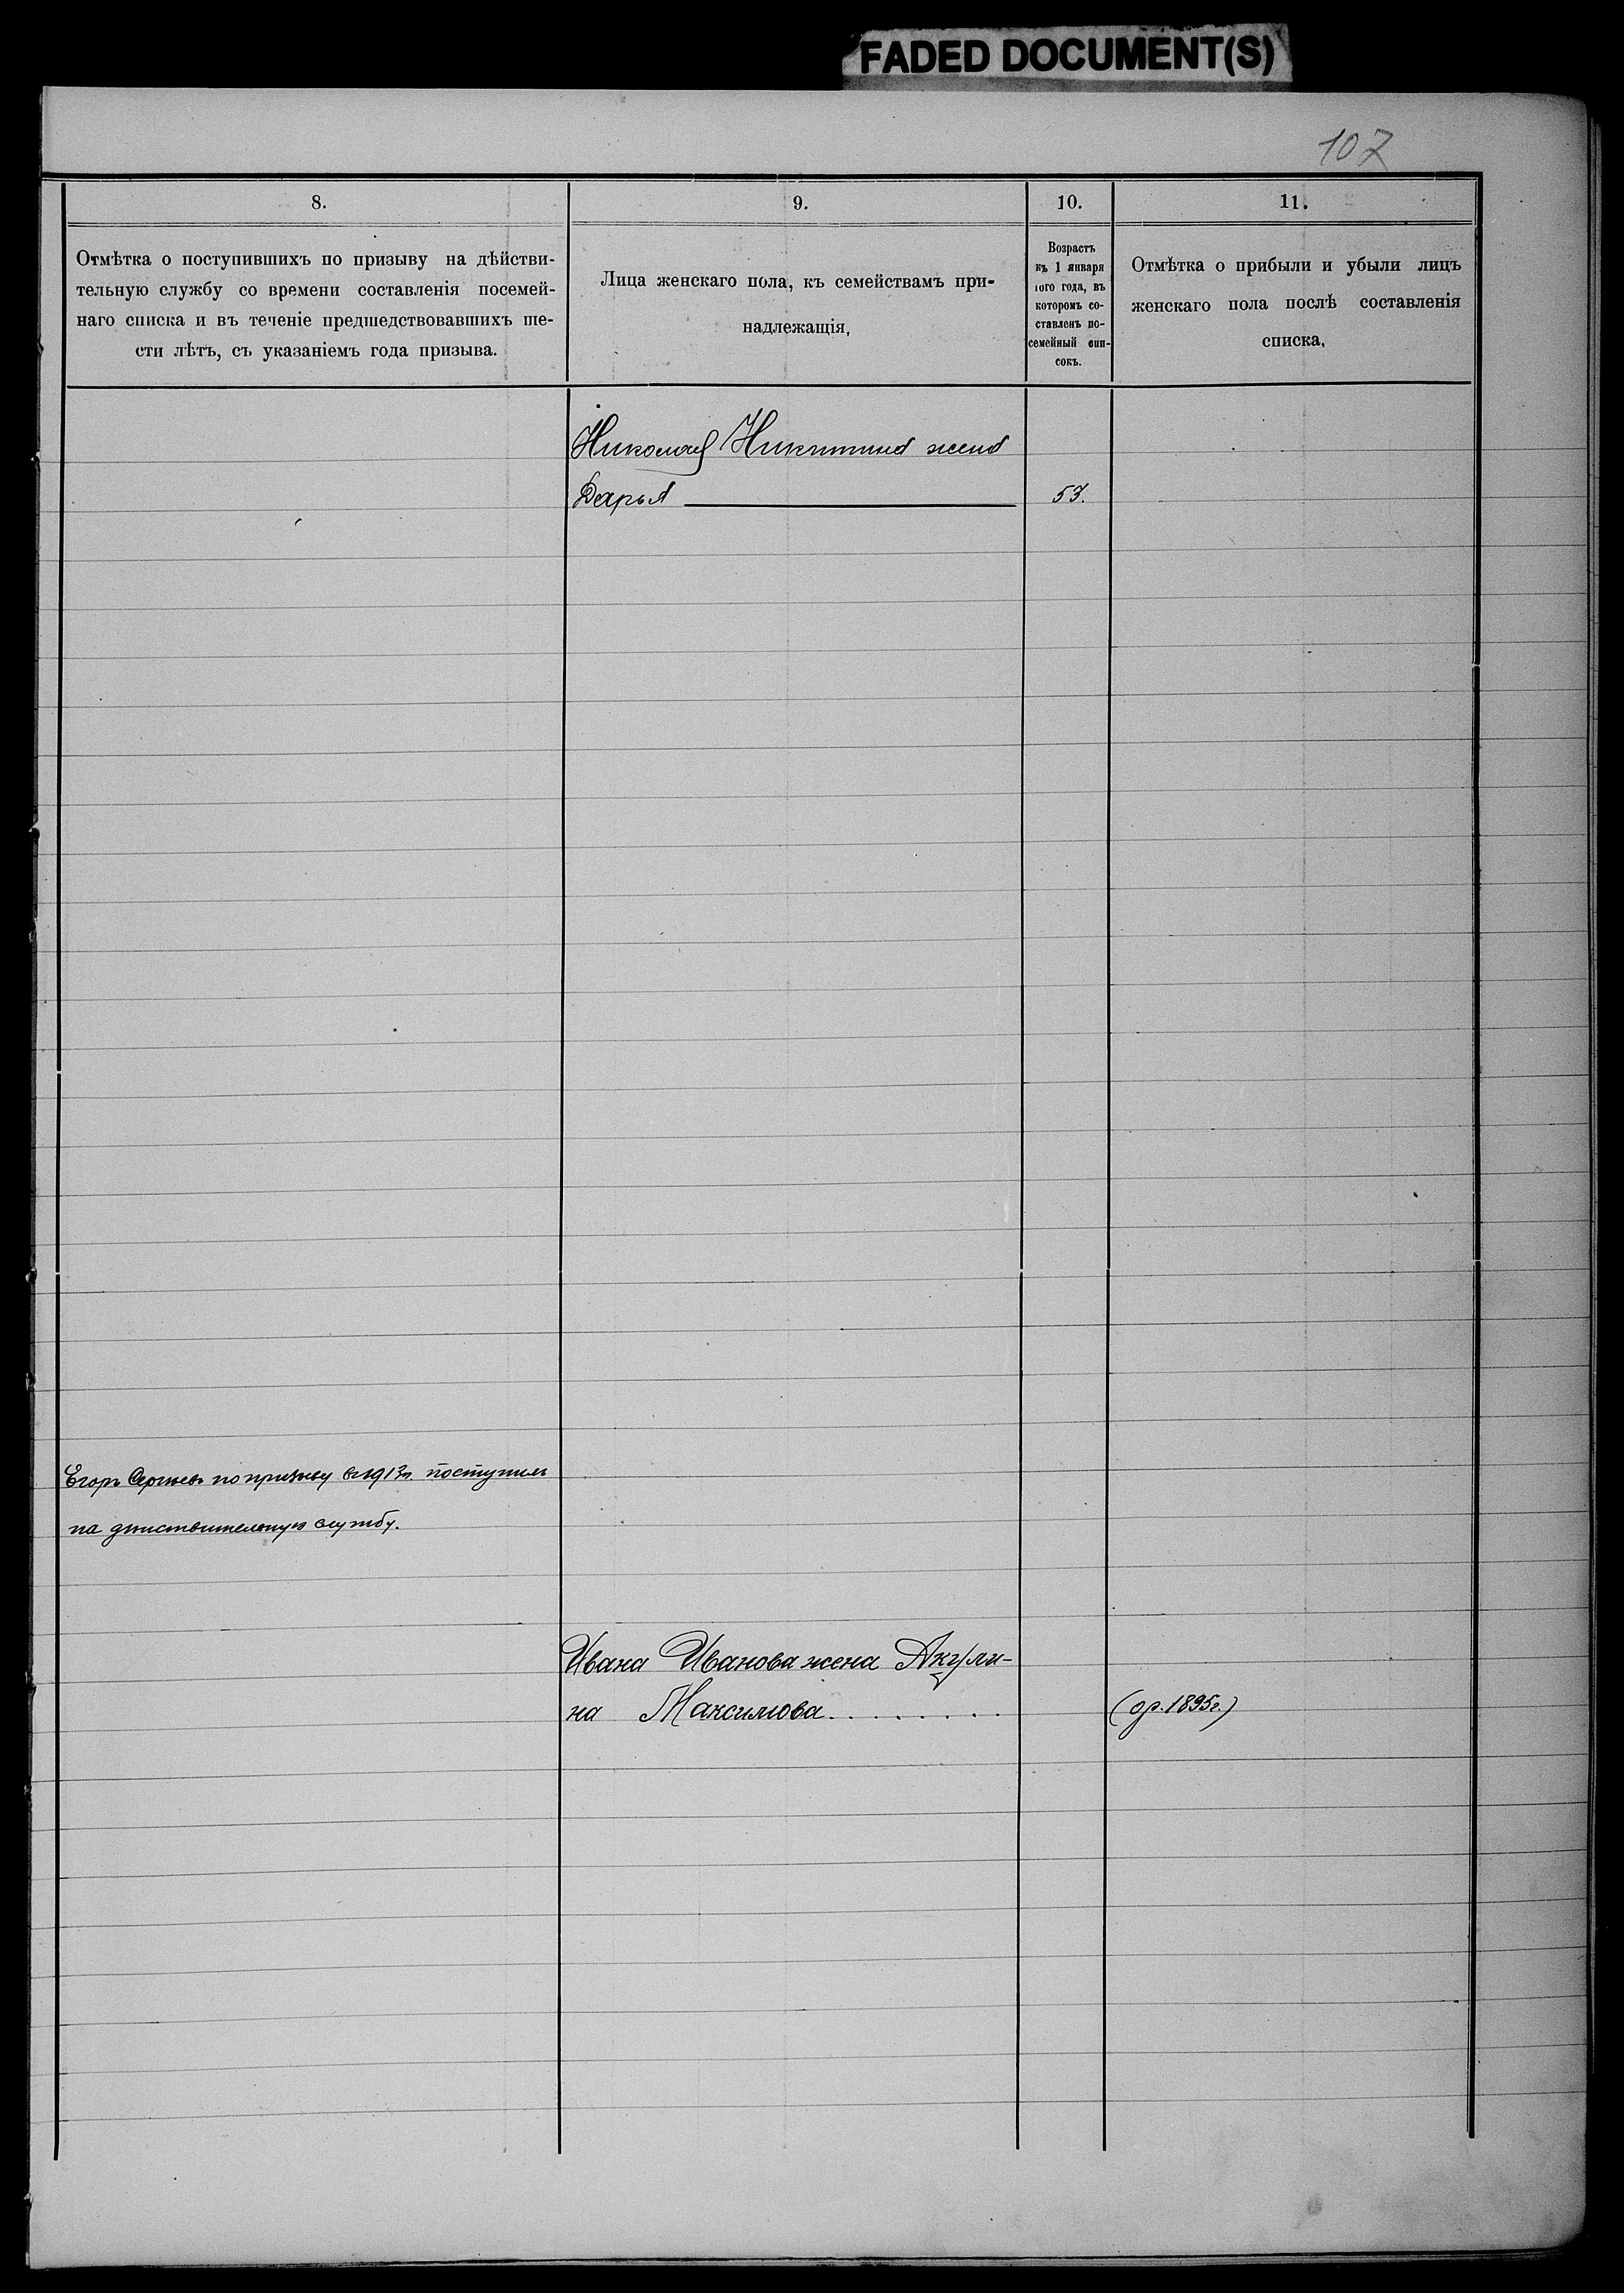 FADED DOCUMENT(S)
107
8.
9.
10.
11.
Отмѣтка о поступившихъ по призыву на дѣйстви-
тельную службу со времени составленія посемей-
наго списка и въ теченіе предшедствовавшихъ ше-
сти лѣтъ, съ указаніемъ года призыва.
Лица женскаго пола, къ семействамъ при-
надлежащія.
Возрастъ
къ 1 января
того года, въ
которомъ со-
ставленъ по-
семейный спи-
сокъ.
Отмѣтка о прибыли и убыли лицъ
женскаго пола послѣ составленія
списка.
Николая Никитина жена
Дарья 53.
Егоръ Сергѣевъ по призыву въ 1913г. поступилъ
на дѣйствительную службу.
Ивана Иванова жена Акули-
на Максимова......... (ор. 1895г.)